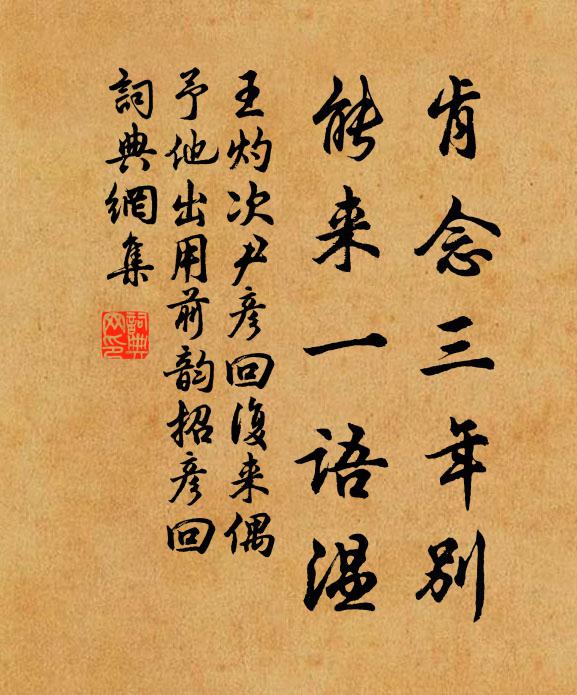 肯念三年别
能来一语温
王灼次尹彦回復来偶
予他出用前韵招彦回
詞典網集
詞典網印